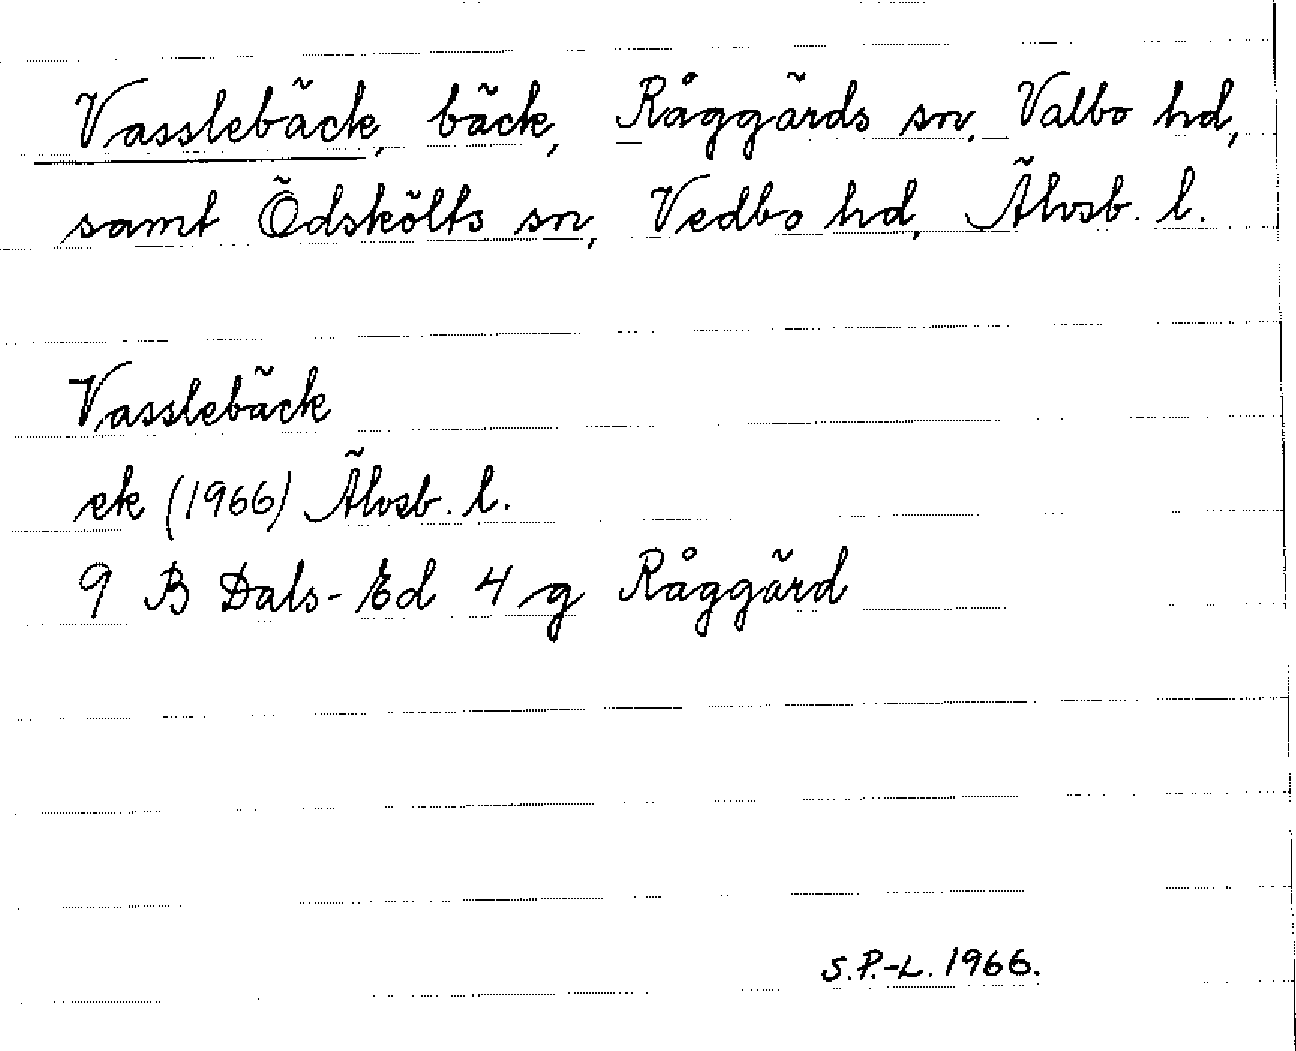 Vasslebäck, bäck, Råggärds sn, Valbo hd,
samt Ödskölts sn, Vedbo hd, Älvsb. l.
Vasslebäck
ek (1966) Älvsb. l.
9 B Dals-Ed 4 g Råggärd
S.P.-L. 1966.